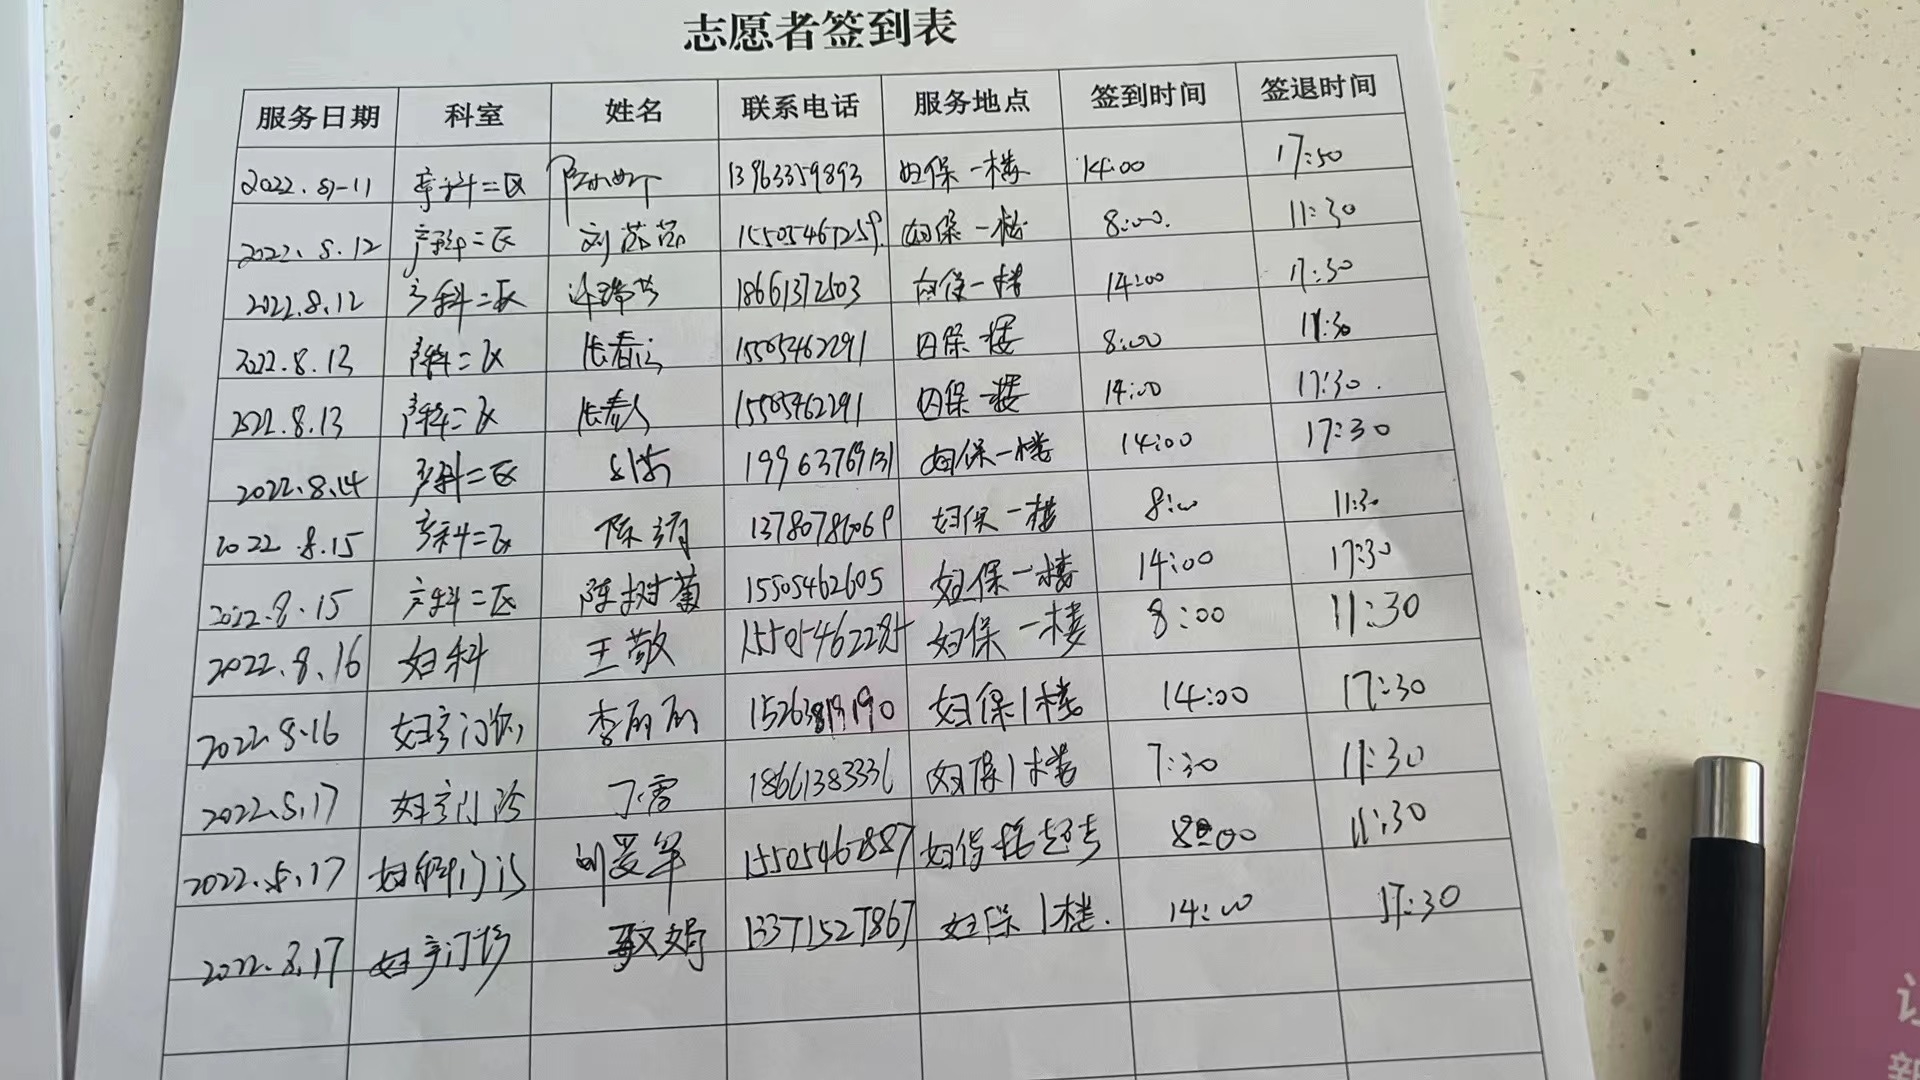 志愿者签到表
服务日期 科室 姓名 联系电话 服务地点 签到时间 签退时间
2022.8-11 产科二区 13963359893 妇保一楼 14:00 17:50
2022.8.12 产科二区 刘茹茹 15505467259 妇保一楼 8:00. 11:30
2022.8.12 产科二区 18661372503 妇保一楼 14:00 17:30
2022.8.13 产科二区 15505462291 妇保一楼 8:00 11:30
2022.8.13 产科二区 15505462291 妇保一楼 14:00 17:30.
2022.8.14 产科二区 19963769131 妇保一楼 14:00 17:30
2022.8.15 产科二区 13780786069 妇保一楼 8:00 11:30
2022.8.15 产科二区 陈树菊 15505462605 妇保一楼 14:00 17:30
2022.8.16 妇科 王敬 15505462285 妇保一楼 8:00 11:30
2022.8.16 妇产门诊 李丽丽 妇保1楼 14:00 17:30
2022.8.17 妇产门诊 丁雪 18661383336 妇保1楼 7:30 11:30
2022.8.17 妇科门诊 刘爱军 15505467887 妇保 8:00 11:30
2022.8.17 妇产门诊 娟 13371527867 妇保1楼. 14:00 17:30